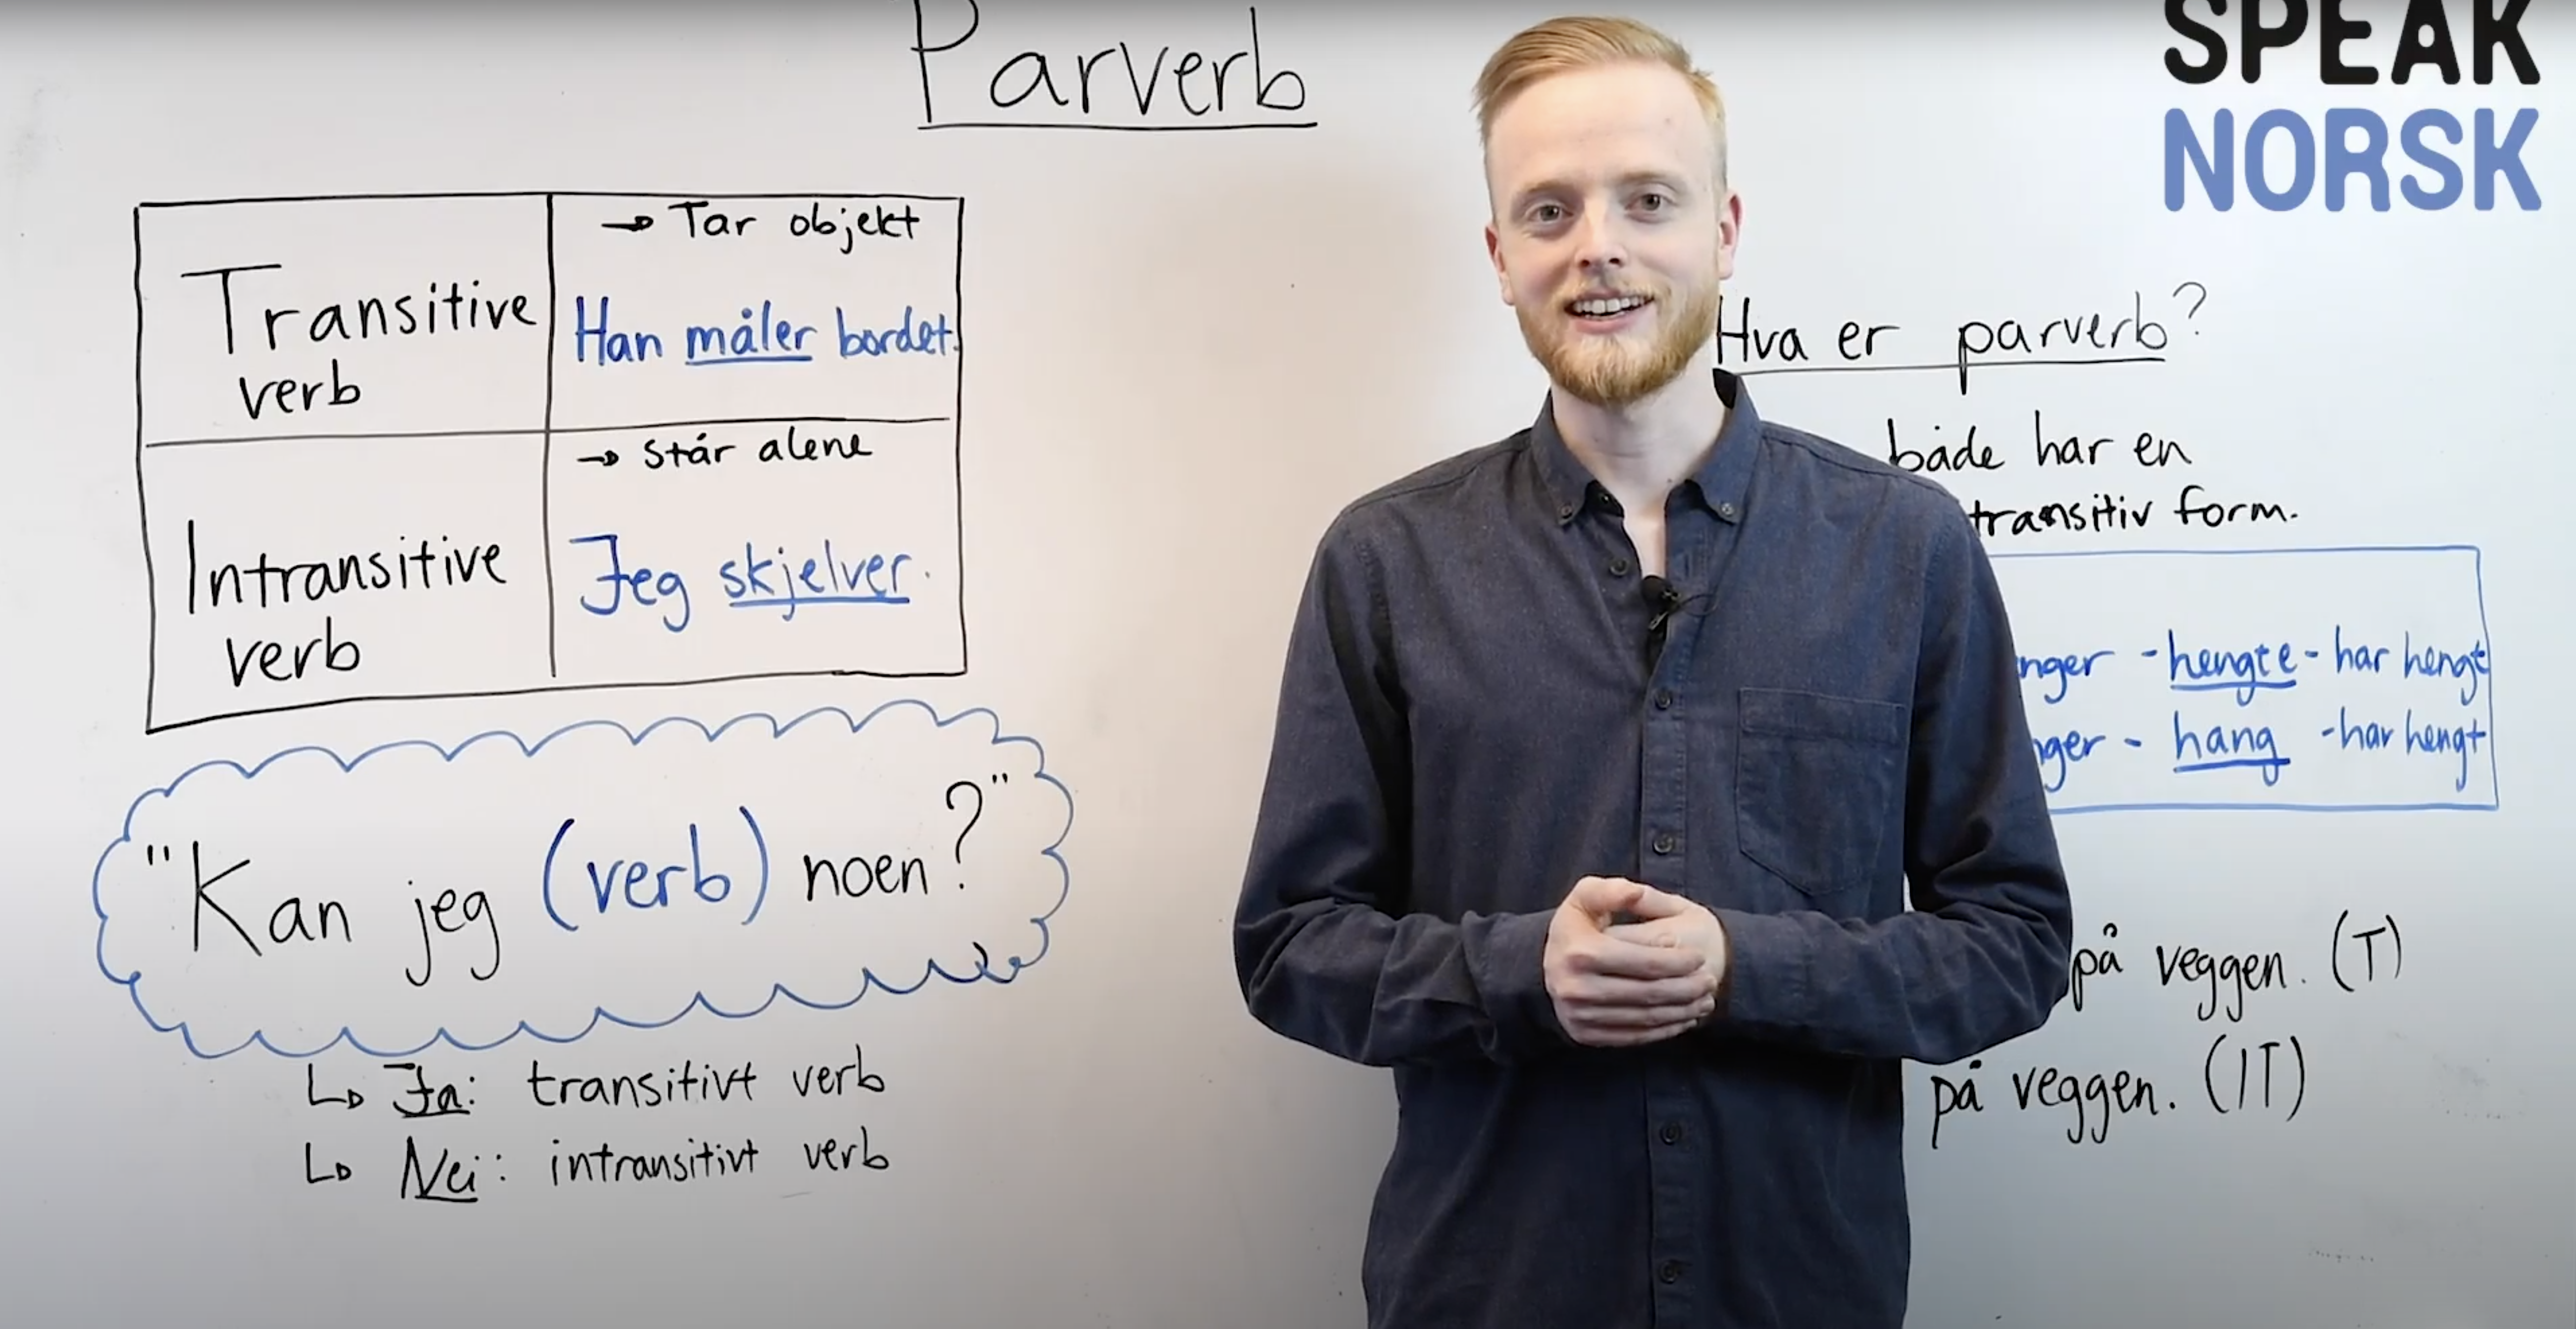 Parverb
SPEAK
NORSK
Transitive
verb
→ Tar objekt
Han måler bordet.
Intransitive
verb
→ står alene
Jeg skjelver.
"Kan jeg (verb) noen?"
↳ Ja: transitivt verb
↳ Nei: intransitivt verb
Hva er parverb?
både har en
transitiv form.
nger - hengte - har hengt
nger - hang - har hengt
på veggen. (T)
på veggen. (IT)